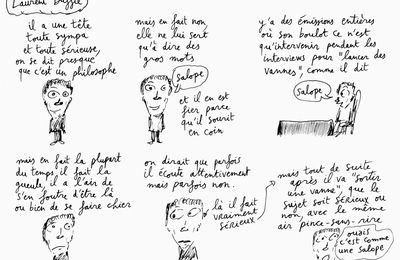 Laurent Baffie
il a une tête
toute sympa
et toute sérieuse,
on se dit presque
que c'est un philosophe
mais en fait non
elle ne lui sert
qu'à dire des
gros mots
salope
et il en est
fier parce
qu'il sourit
en coin
y'a des émissions entières
où son boulot ce n'est
qu'intervenir pendent les
interviews pour "lancer des
vannes", comme il dit
salope
mais en fait la plupart
du temps il fait la
gueule, il a l'air de
s'en foutre d'être là
ou bien de se faire chier
on dirait que parfois
il écoute attentivement
mais parfois non.
là il fait
vraiment
sérieux
mais tout de suite
après il va "sortir
une vanne", que le
sujet soit sérieux ou
non, avec le même
air pince-sans-rire
ouais
c'est comme
une salope